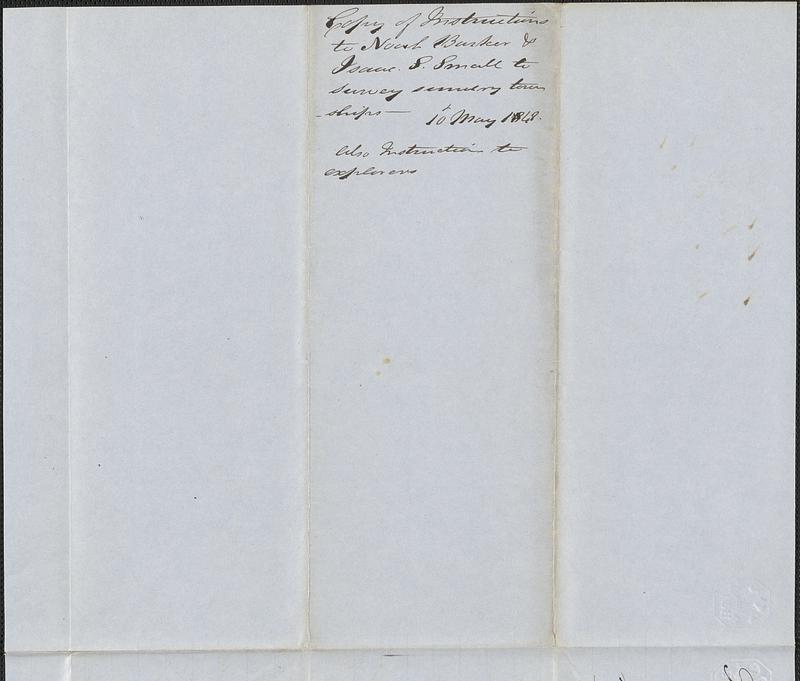 Copy of Instructions
to Noah Barker &
Isaac. S. Small to
survey sundry town
-ships — 10 May 1848.
Also Instruction to
explorers